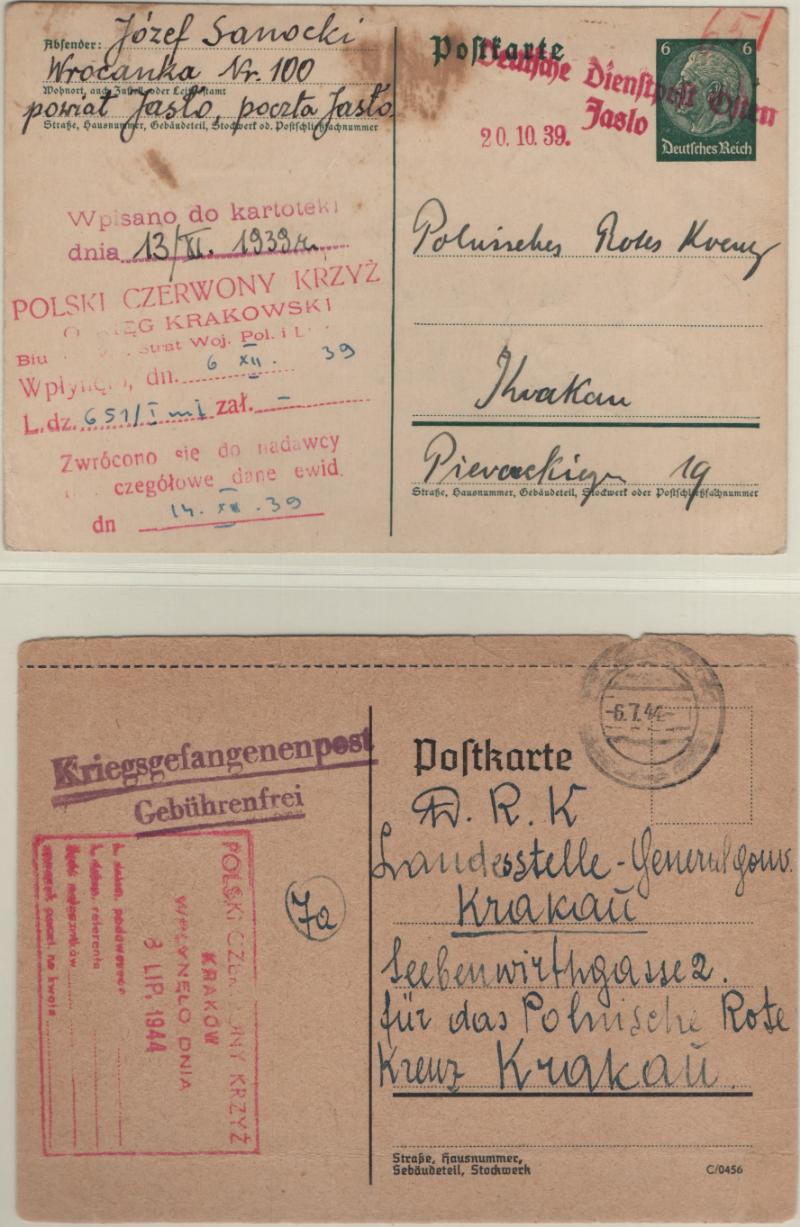 Absender: Józef Sanocki
Wrocanka Nr. 100
Wohnort, auch Zustell- oder Leitpostamt
powiat Jasło, poczta Jasło.
Straße, Hausnummer, Gebäudeteil, Stockwerk od. Postschließfachnummer
Wpisano do kartoteki
dnia 13/XI. 1939 r.
POLSKI CZERWONY KRZYŻ
KRAKOWSKI
Biu Strat Woj. Pol. i L
Wpłynęło, dn. 6 XII. 39
L.dz. 651/I ml zał. -
Zwrócono się do nadawcy
czegółowe dane ewid.
dn 14. XII. 39
651
Postkarte
6 6
Deutsches Reich
Deutsche Dienstpost Osten
Jaslo
20.10.39.
Polnisches Rotes Kreuz
Krakau
Pierackiego 19
Straße, Hausnummer, Gebäudeteil, Stockwerk oder Postschließfachnummer
Kriegsgefangenenpost
Gebührenfrei
POLSKI CZERWONY KRZYŻ
KRAKÓW
WPŁYNĘŁO DNIA
8 LIP. 1944
referenta
7a
-6.7.44-
Postkarte
D. R. K
Landesstelle-Generalgouv.
Krakau
Seebenwirthgasse 2.
für das Polnische Rote
Kreuz Krakau.
Straße, Hausnummer,
Gebäudeteil, Stockwerk
C/0456